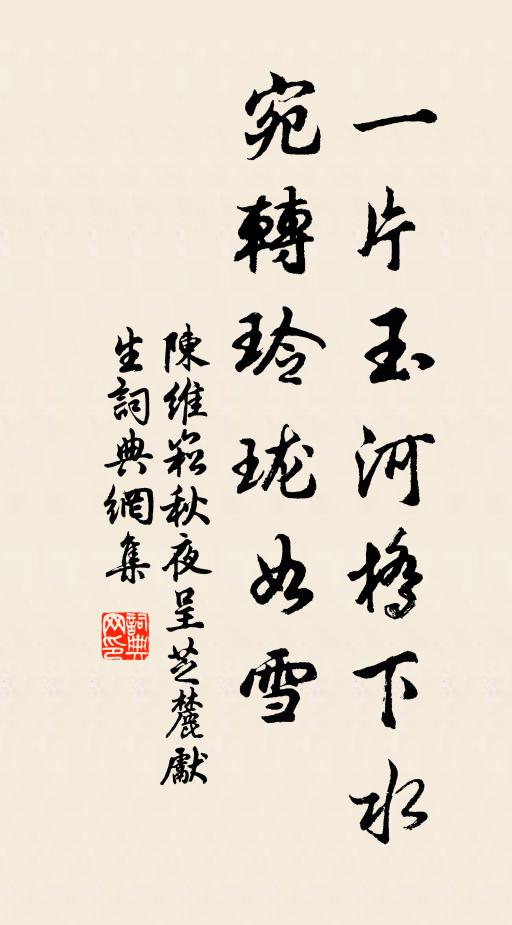 一片玉河橋下水
宛轉玲瓏如雪
陳維崧秋夜呈芝麓獻
生詞典網集
詞典網印